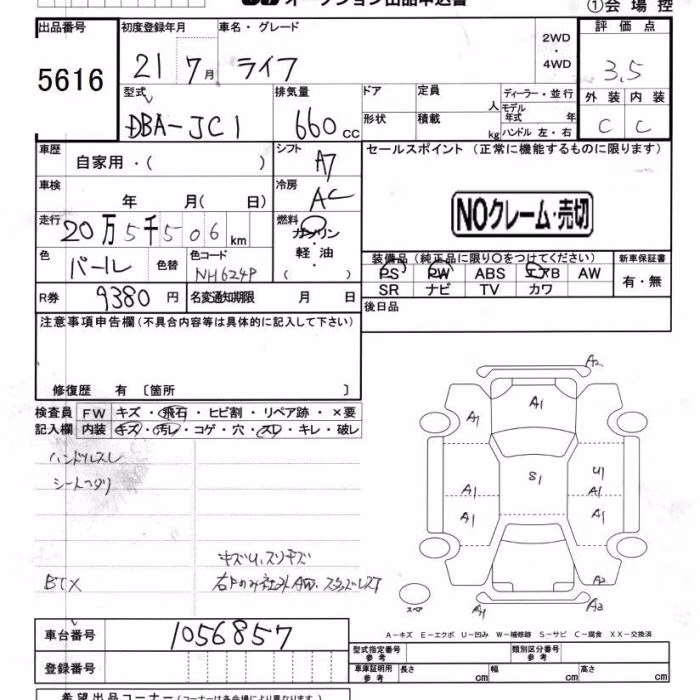 オークション出品申込書
①会場控
出品番号 初度登録年月 車名・グレード 2WD・4WD 評価点
5616 21年7月 ライフ 3.5
型式 排気量 ドア 定員 人 ディーラー・並行 外装 内装
DBA-JC1 660cc 形状 積載 kg モデル年式 年 C C
ハンドル 左・右
車歴 自家用・( ) シフト A7 セールスポイント (正常に機能するものに限ります)
車検 年 月( 日) 冷房 AC
NOクレーム・売切
走行 20万5千506km 燃料 ガソリン・軽油・( )
装備品 (純正品に限り〇をつけてください) 新車保証書
色 パール 色替 色コード NH624P
PS PW ABS エアB AW 有・無
SR ナビ TV カワ
R券 9380円 名変通知期限 月 日
後日品
注意事項申告欄 (不具合内容等は具体的に記入して下さい)
修復歴 有 〔箇所 〕
検査員 FW キズ・飛石・ヒビ割・リペア跡・×要
記入欄 内装 キズ・汚レ・コゲ・穴・スレ・キレ・破レ
ハンドルスレ
シートヘタリ
キズU、スリキズ
BTX
A2
A1
A1 A1
S1 U1
A1 A1
A1 A1
A2
スペア A1 A3
A-キズ E-エクボ U-凹み W-補修跡 S-サビ C-腐食 XX-交換済
車台番号 1056857
型式指定番号 参考 類別区分番号 参考
登録番号
車庫証明用 参考 長さ cm 幅 cm 高さ cm
希望出品コーナー (コーナーは各会場により異なります。)